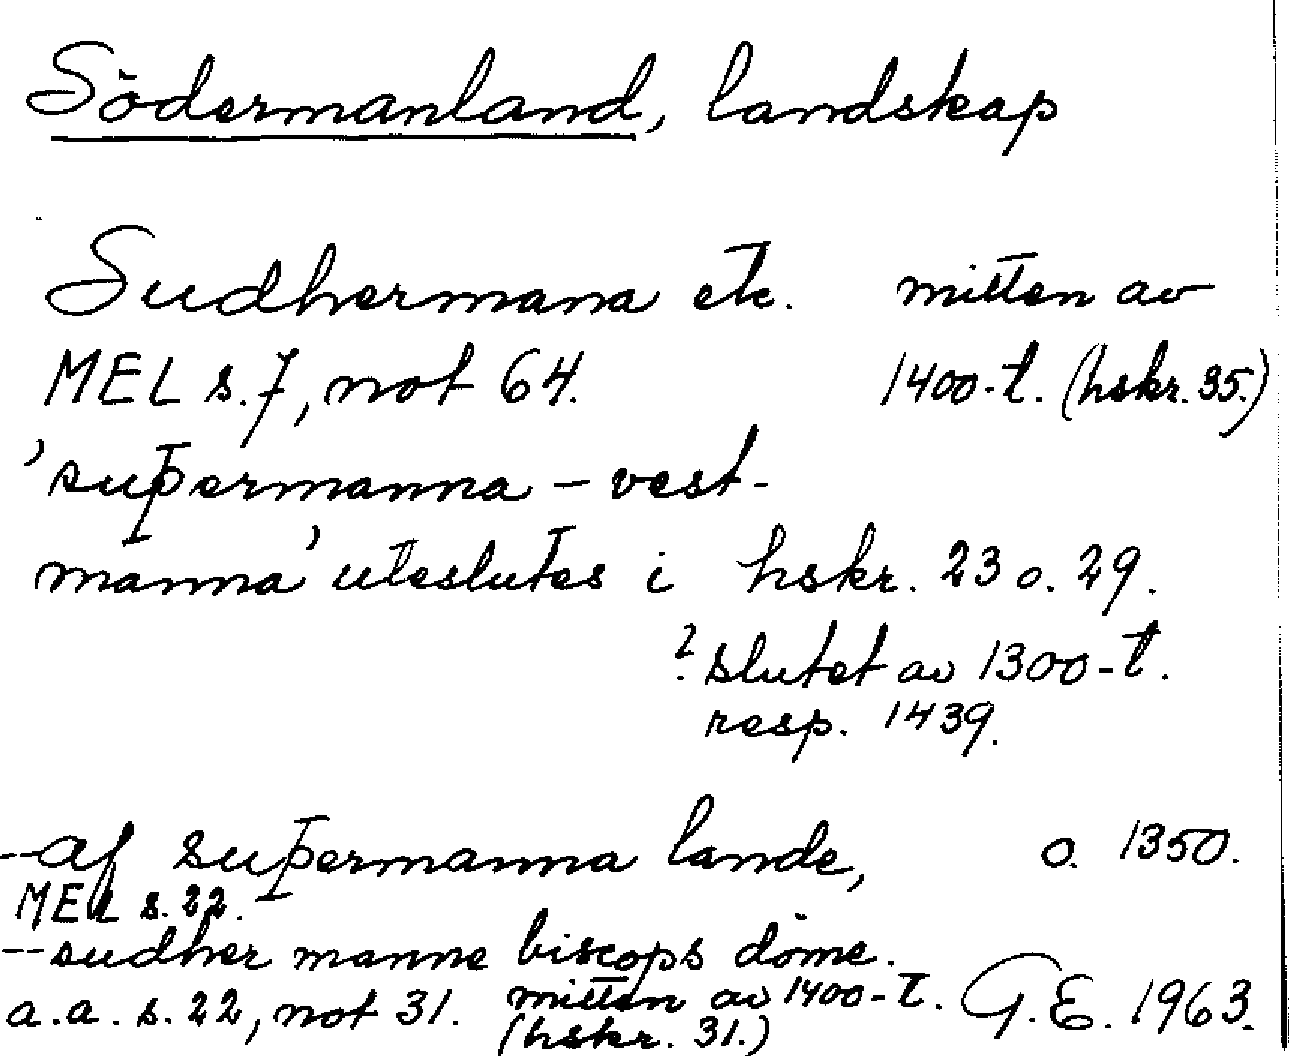 Södermanland, landskap
Sudhermana etc. mitten av
MEL s. 7, not 64. 1400-t. (hskr. 35.)
'suþermanna - vest-
manna' uteslutes i hskr. 23 o. 29.
? slutet av 1300-t.
resp. 1439.
--af suþermanna lande, o. 1350.
MEL s. 22.
--sudher manne biscops döme.
a.a. s. 22, not 31. mitten av 1400-t. G.E. 1963.
(hskr. 31.)